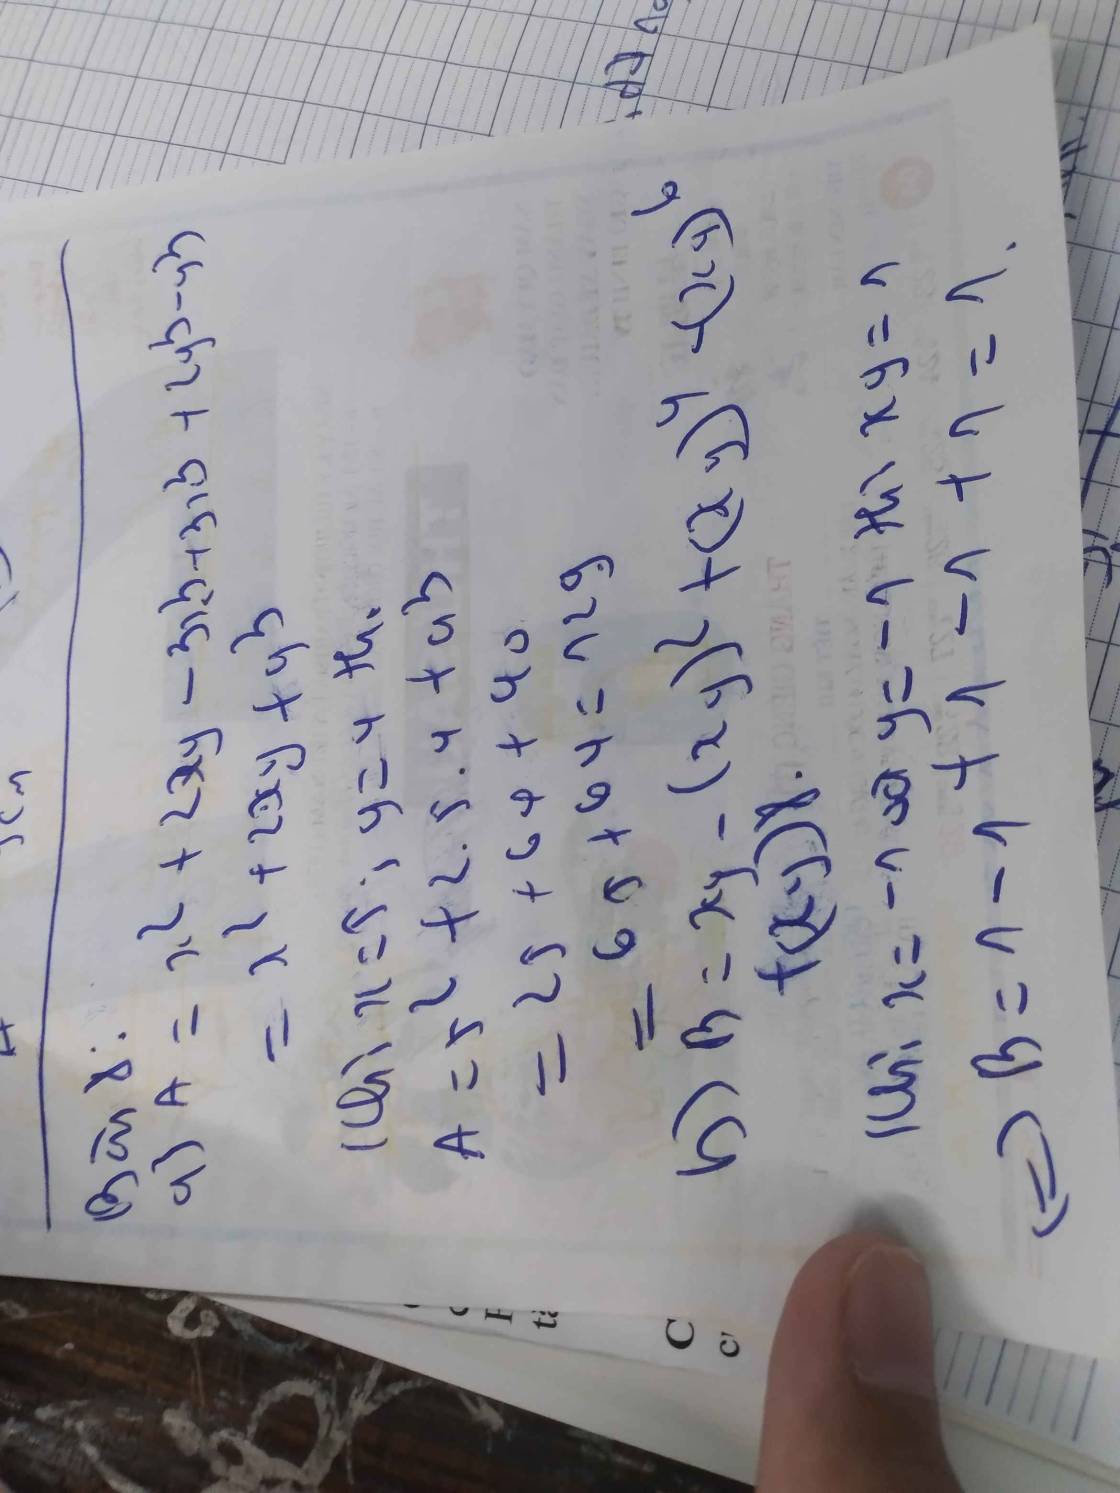 Bài 8:
a) A = x² + 2xy - 3x³ + 3x³ + 2y³ - y³
= x² + 2xy + y³
Khi x = 5; y = 4 thì
A = 5² + 2.5.4 + 4³
= 25 + 64 + 40
= 65 + 64 = 129
b) B = xy - (xy)² + (xy)⁴ - (xy)⁶
+ (xy)⁸.
Khi x = -1 và y = -1 thì xy = 1
⇔ B = 1 - 1 + 1 - 1 + 1 = 1.